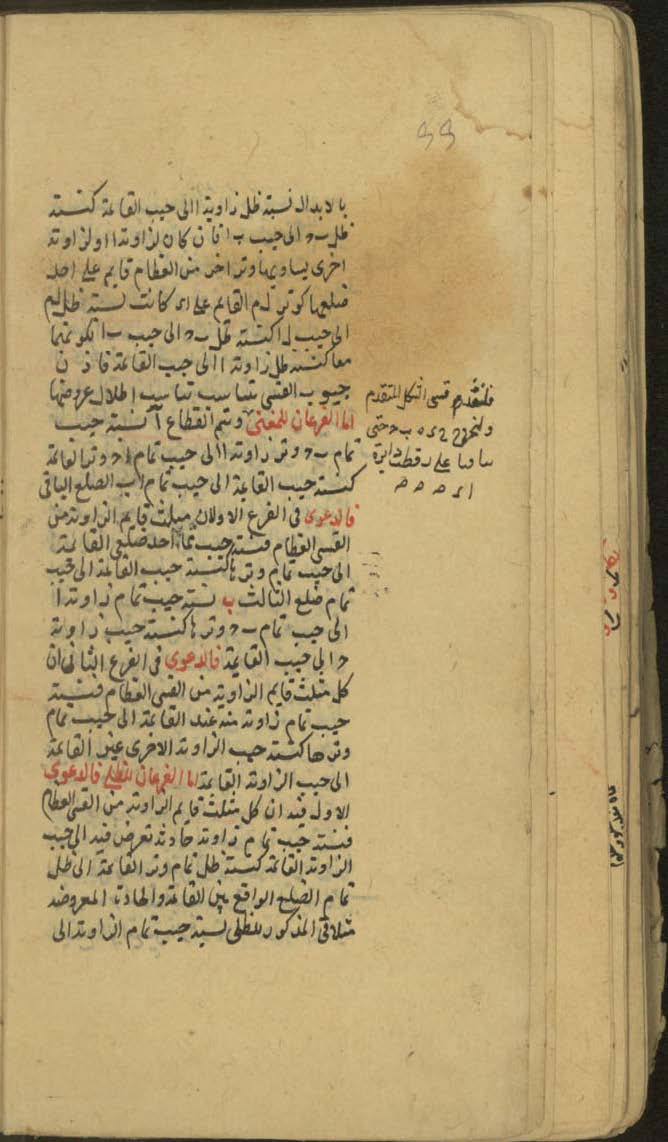 99
بالابدال نسبة ظل زاوية ا الى جيب القائمة كنسبة
ظل ب ح الى جيب ب ا فان كان لزاوية ا او لزاوية
اخرى يساويها وتر اخر من العظام قايم على احد
ضلعيها كوتر ل م القايم على ا ى كانت نسبة ظل ل م
الى جيب ل ا كنسبة ظل ب ح الى جيب ب ا لكونهما
معا كنسبة ظل زاوية ا الى جيب القائمة فاذن
جيوب القسى تناسب تناسب اظلال عروضها
اما الفرعان للمغنى وتمم القطاع نسبة جيب
تمام ب ح وتر زاوية ا الى جيب تمام ا ح وتر القائمة
كنسبة جيب القائمة الى جيب تمام ا ب الضلع الباقى
فالدعوى فى الفرع الاول ان مثلث قايم الزاوية من
القسى العظام فنسبة جيب تمام احد ضلعى القائمة
الى جيب تمام وترها كنسبة جيب القائمة الى جيب
تمام ضلع الثالث ب نسبة جيب تمام زاوية ا
الى جيب تمام ب ح وترها كنسبة جيب زاوية
ح الى جيب القائمة فالدعوى فى الفرع الثانى ان
كل مثلث قايم الزاوية من القسى العظام فنسبة
جيب تمام زاوية منه عند القائمة الى جيب تمام
وترها كنسبة جيب الزاوية الاخرى غير القائمة
الى جيب الزاوية القائمة اما الفرعان للظلى فالدعوى
الاول فيه ان كل مثلث قايم الزاوية من القسى العظام
فنسبة جيب تمام زاوية حادثة تعرض فيه الى جيب
الزاوية القائمة كنسبة ظل تمام وتر القائمة الى ظل
تمام الضلع الواقع بين القائمة والحادة المعروضة
مثلا فى المذكور للظلى نسبة جيب تمام الزاوية الى
فلنقدم قسى الشكل المتقدم
ولنخرج
على دائرة